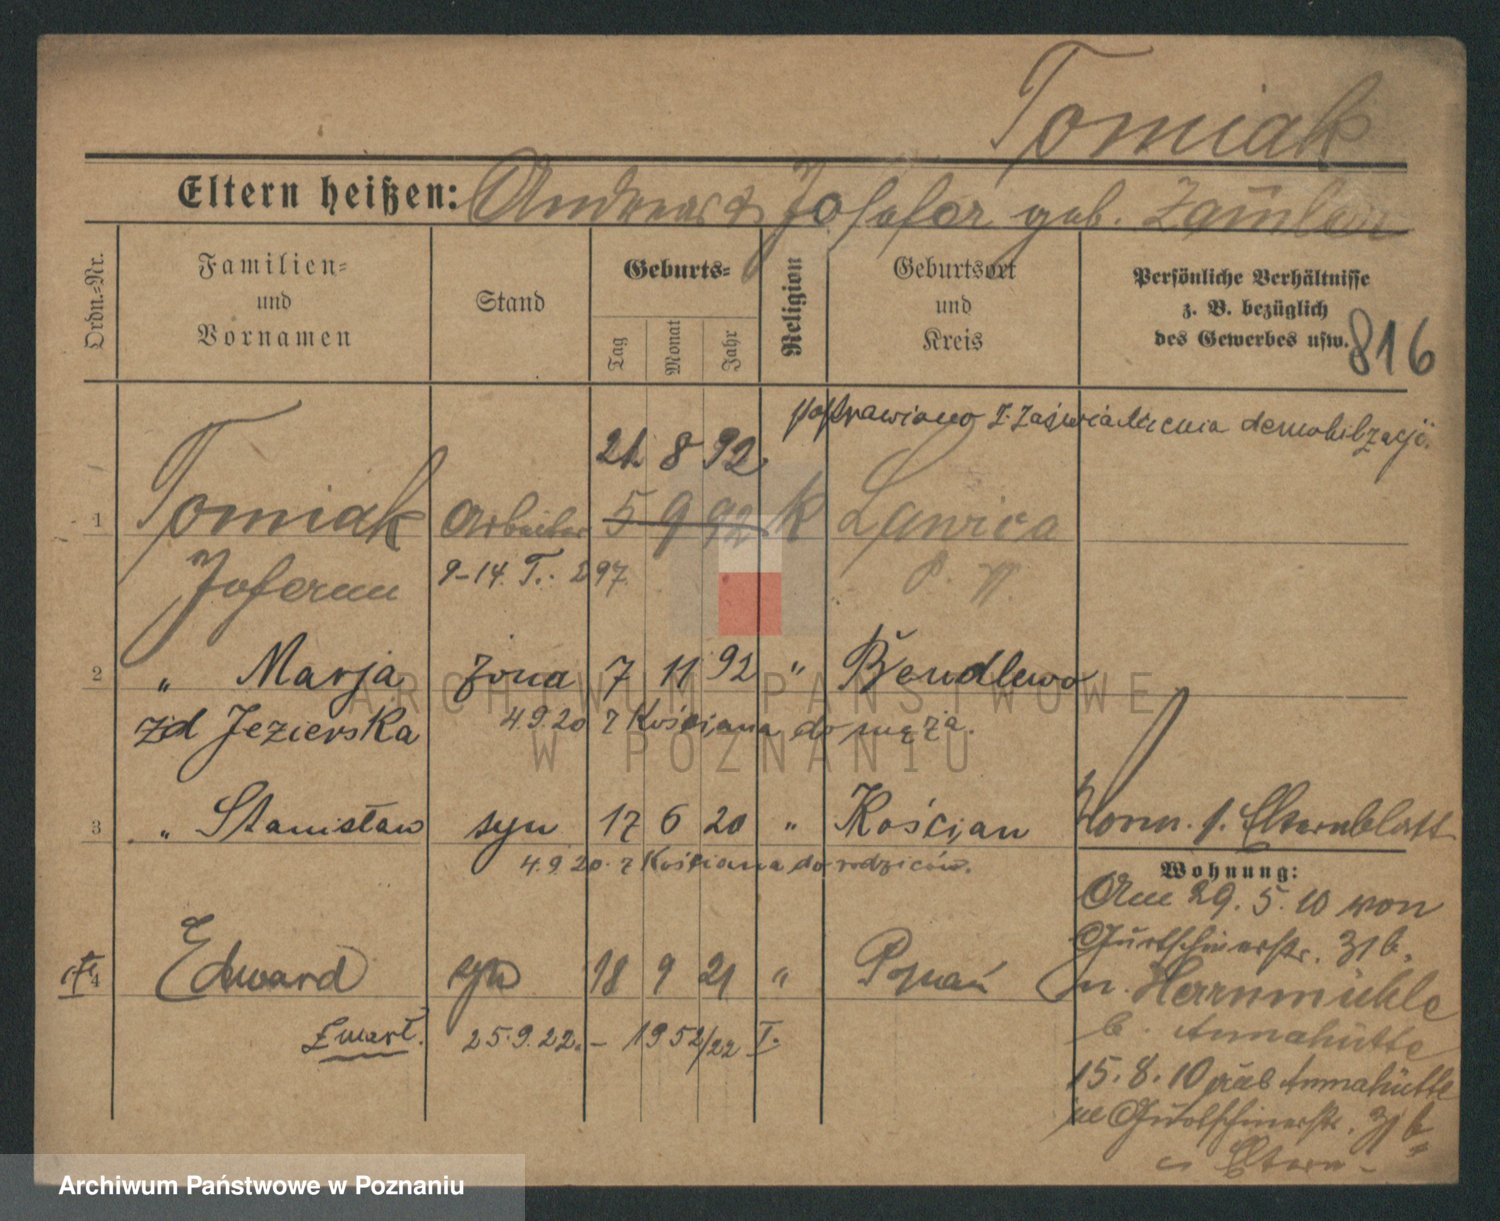 Tomiak
Eltern heißen: Andreas & Josefa geb.
Ordn.-Nr.
Familien-
und
Vornamen
Stand
Geburts-
Tag
Monat
Jahr
Religion
Geburtsort
und
Kreis
Persönliche Verhältnisse
z. B. bezüglich
des Gewerbes usw.
816
poprawiono z zaświadczenia demobilizacji.
21. 8 92
1 Tomiak Arbeiter 5 9 92 K Lawica
9-14. T. 297. P. W.
2 " Marja żona 7 11 92 " Bendlewo
zd Jezierska 4.9.20 z Kościana do męża.
3 " Stanisław syn 17 6 20 " Kościan
4.9.20. z Kościana do rodziców.
Elternblatt
Wohnung:
Am 29.5.10 von
Gurtschinerstr. 31b.
n. Herrnmühle
b. Annahütte
15.8.10 Annahütte
Gurtschinerstr. 31b
Eltern
4 Edward syn 18 9 21 " Poznań
zmarł. 25.9.22. - 1952/22 T.
ARCHIWUM PAŃSTWOWE
W POZNANIU
Archiwum Państwowe w Poznaniu